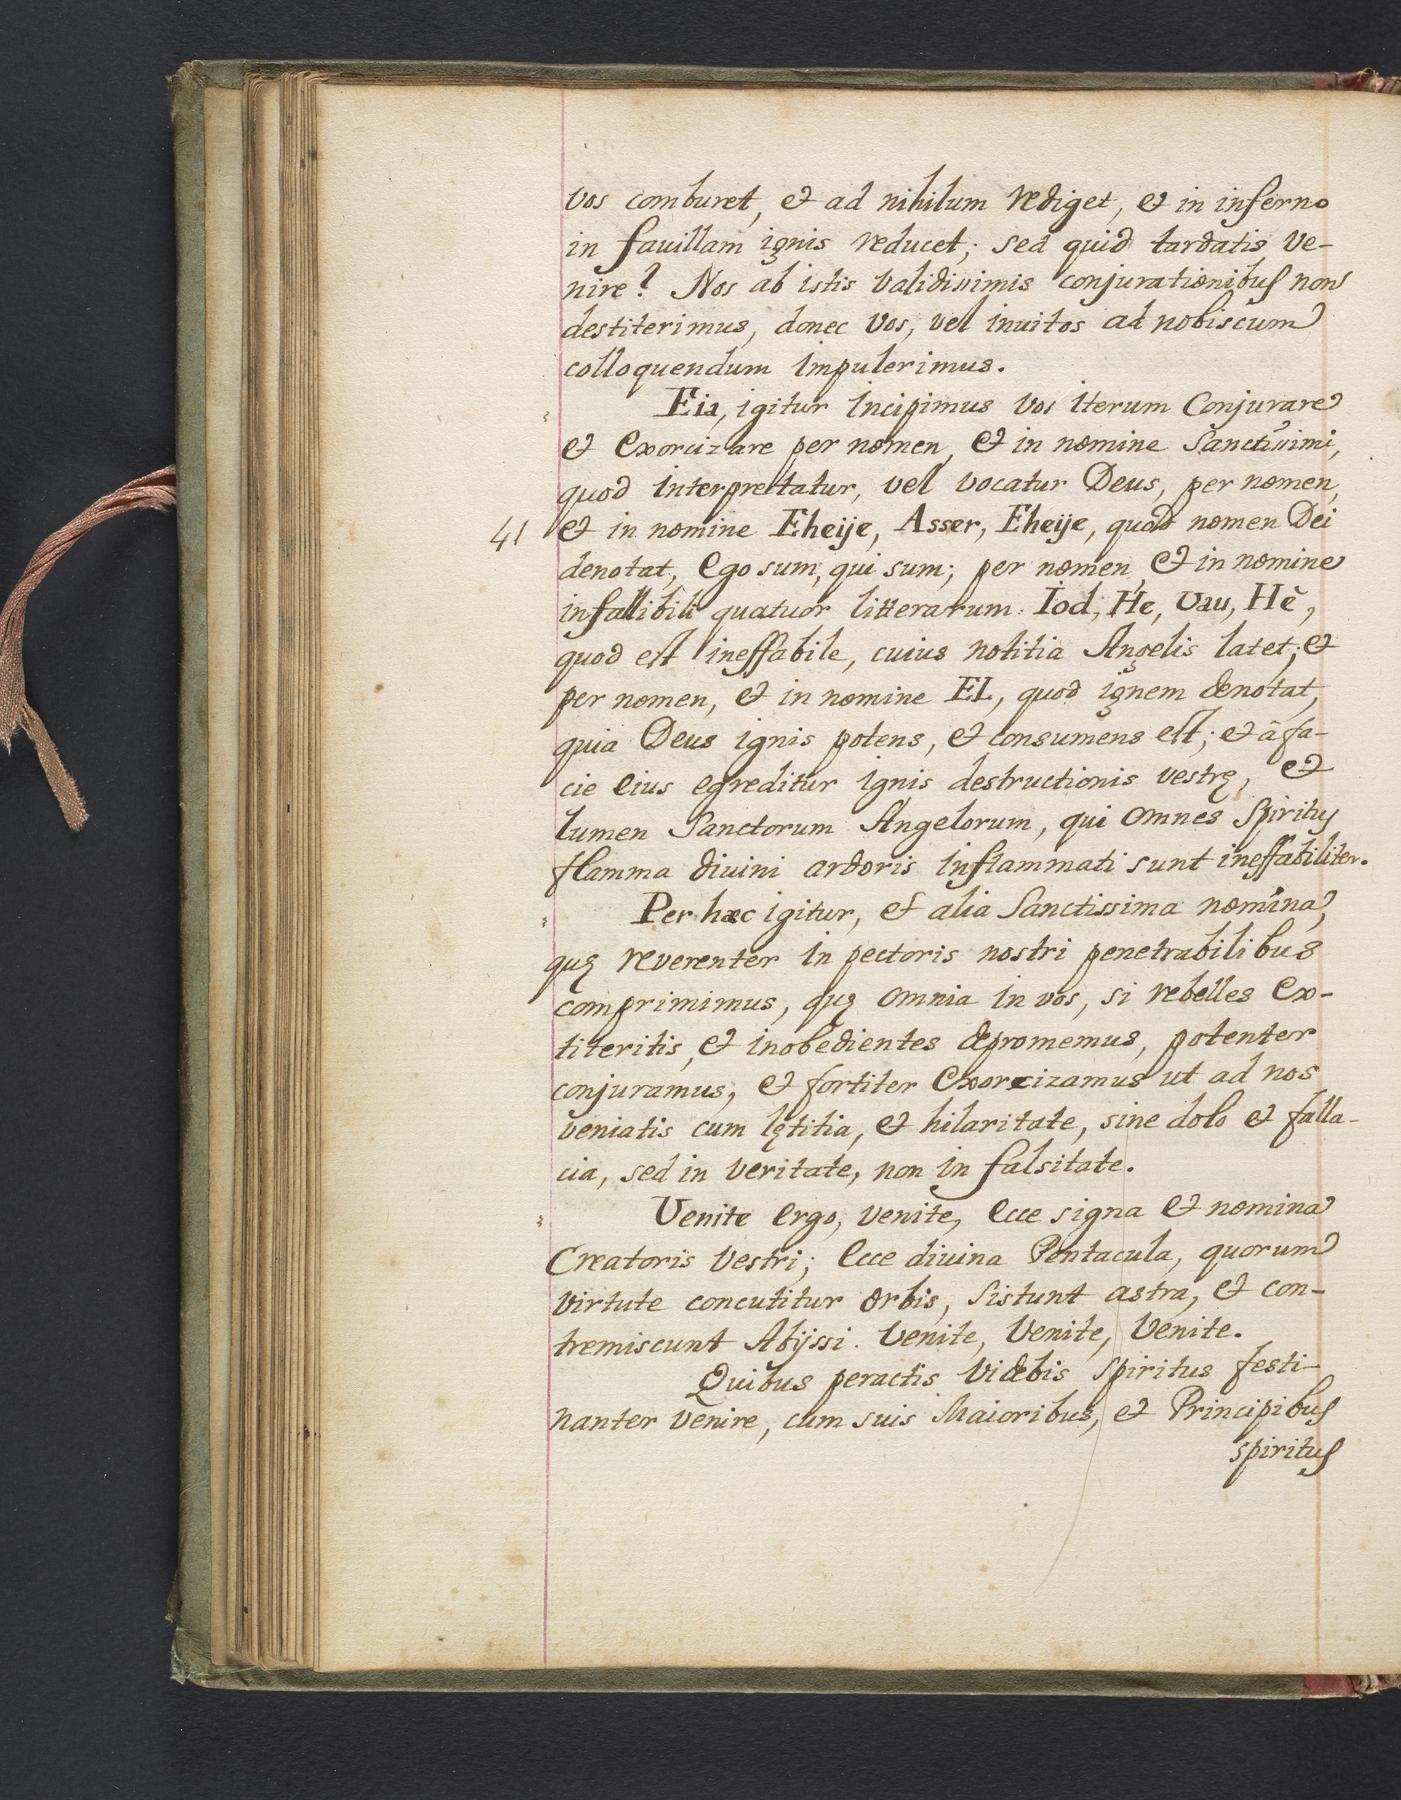 vos comburet, et ad nihilum rediget, et in inferno
in fauillam ignis reducet; sed quid tardatis ve-
nire? Nos ab istis validissimis conjurationibus non
destiterimus, donec vos, vel inuitos ad nobiscum
colloquendum impulerimus.
Eia, igitur incipimus vos iterum Conjurare
et Exorcizare per nomen, et in nomine Sanctissimi,
quod interpretatur, vel vocatur Deus, per nomen,
41 et in nomine Eheije, Asser, Eheije, quod nomen Dei
denotat, Ego sum, qui sum; per nomen, et in nomine
infallibili quatuor litterarum Iod, He, Vau, Hè,
quod est ineffabile, cuius notitia Angelis latet; et
per nomen, et in nomine EL, quod ignem denotat,
quia Deus ignis potens, et consumens est; et â fa-
cie eius egreditur ignis destructionis vestrę, et
lumen Sanctorum Angelorum, qui omnes Spiritus
flamma diuini ardoris inflammati sunt ineffabiliter.
Per hæc igitur, et alia Sanctissima nomina,
quę reverenter in pectoris nostri penetrabilibus
comprimimus, quę omnia in vos, si rebelles ex-
titeritis, et inobedientes depromemus, potenter
conjuramus, et fortiter Exorcizamus ut ad nos
veniatis cum lętitia, et hilaritate, sine dolo et falla-
cia, sed in veritate, non in falsitate.
Venite ergo, venite, ecce signa et nomina
Creatoris vestri; Ecce diuina Pentacula, quorum
virtute concutitur orbis, sistunt astra, et con-
tremiscunt Abijssi. Venite, Venite, Venite.
Quibus peractis videbis Spiritus festi-
nanter venire, cum suis Maioribus, et Principibus
spiritus